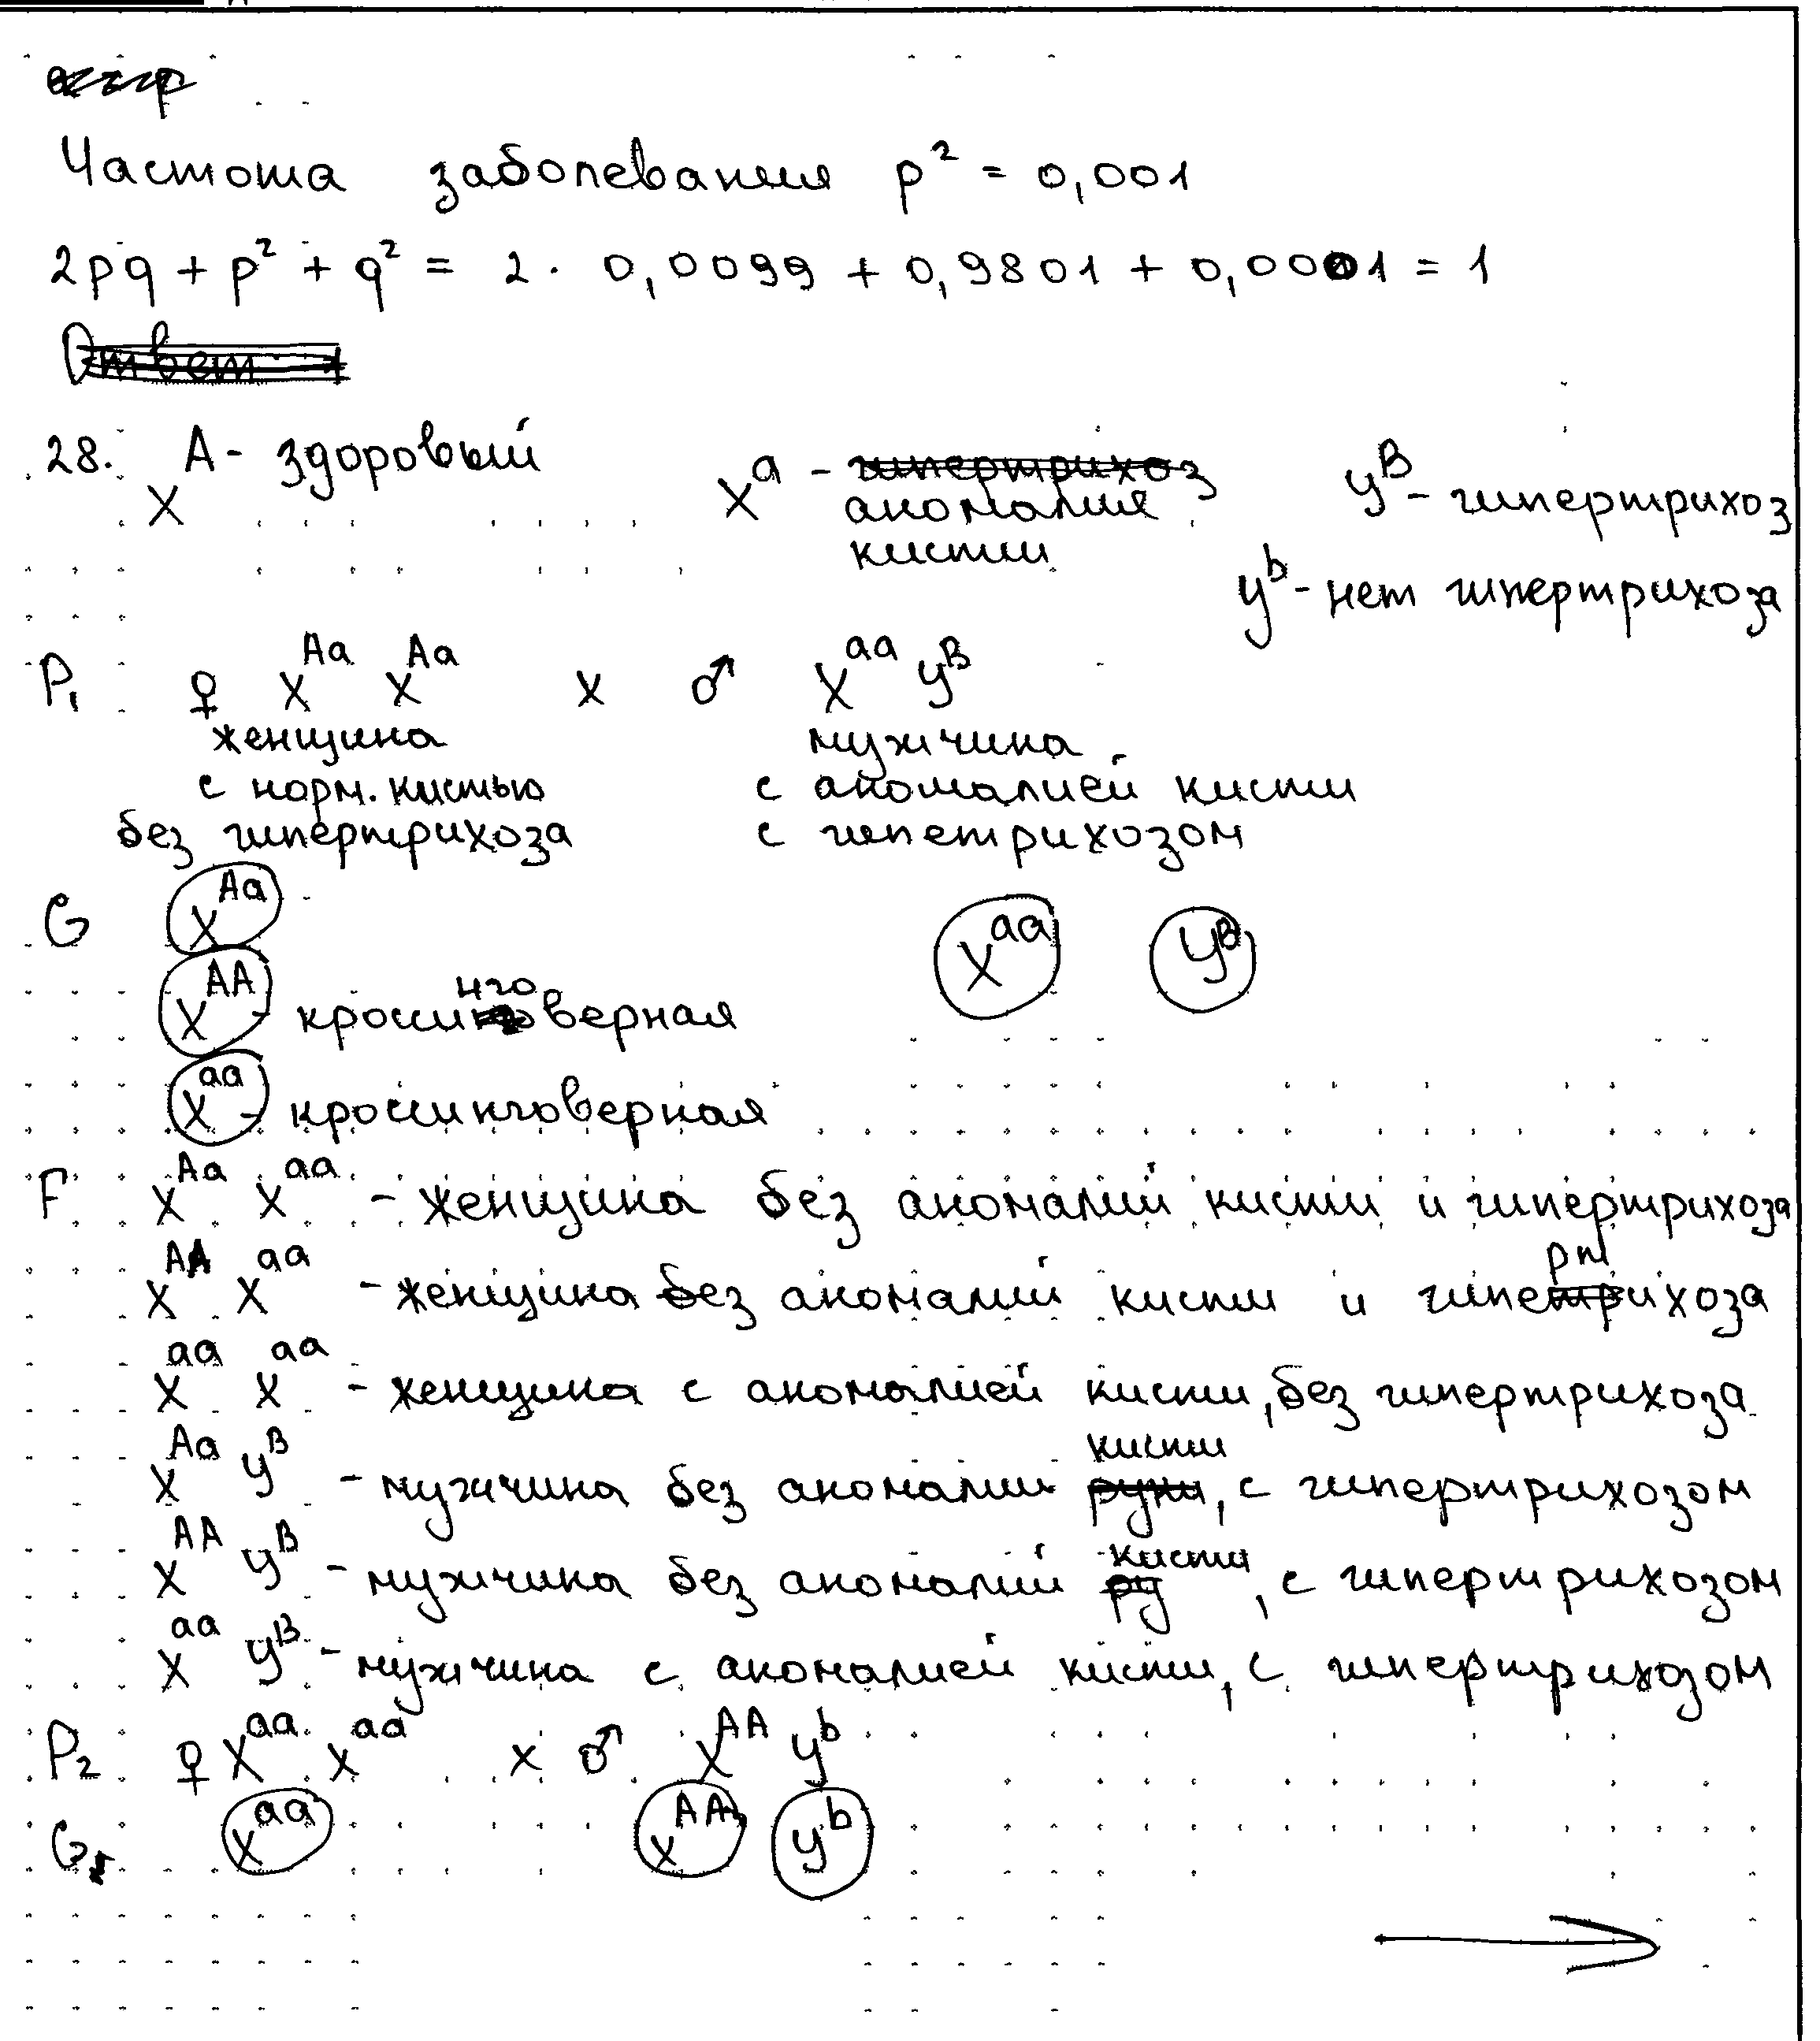 Частота заболевания p² = 0,001
2pq + p² + q² = 2 · 0,0099 + 0,9801 + 0,0001 = 1
Ответ
28. X^A - здоровый X^a - гипертрихоз аномалия кисти Y^B - гипертрихоз
Y^b - нет гипертрихоза
P₁ ♀ X^Aa X^Aa x ♂ X^aa Y^B
женщина мужчина
с норм. кистью с аномалией кисти
без гипертрихоза с гипетрихозом
G X^Aa X^aa Y^B
X^AA - кроссинговерная
X^aa - кроссинговерная
F X^Aa X^aa - женщина без аномалий кисти и гипертрихоза
X^AA X^aa - женщина без аномалий кисти и гипертрихоза
X^aa X^aa - женщина с аномалией кисти, без гипертрихоза
X^Aa Y^B - мужчина без аномалии руки кисти, с гипертрихозом
X^AA Y^B - мужчина без аномалий ру кисти, с гипертрихозом
X^aa Y^B - мужчина с аномалией кисти, с гипертрихозом
P₂ ♀ X^aa X^aa x ♂ X^AA Y^b
G X^aa X^AA Y^b
→